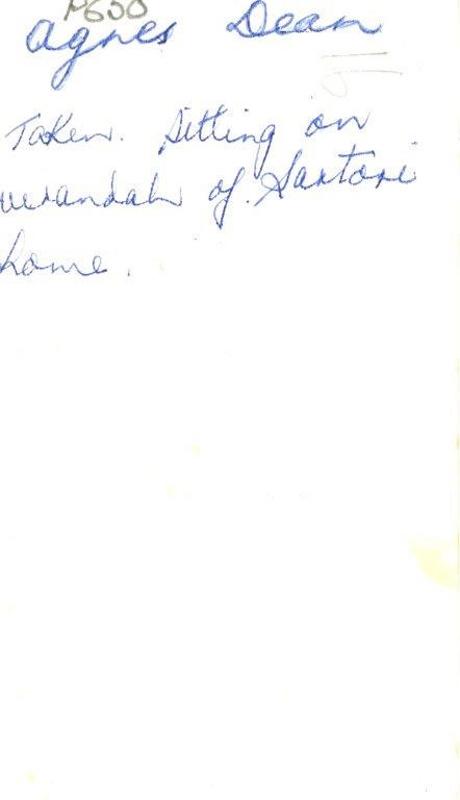 P630
Agnes Dean
Taken. Sitting on
verandah of Sartori
home.